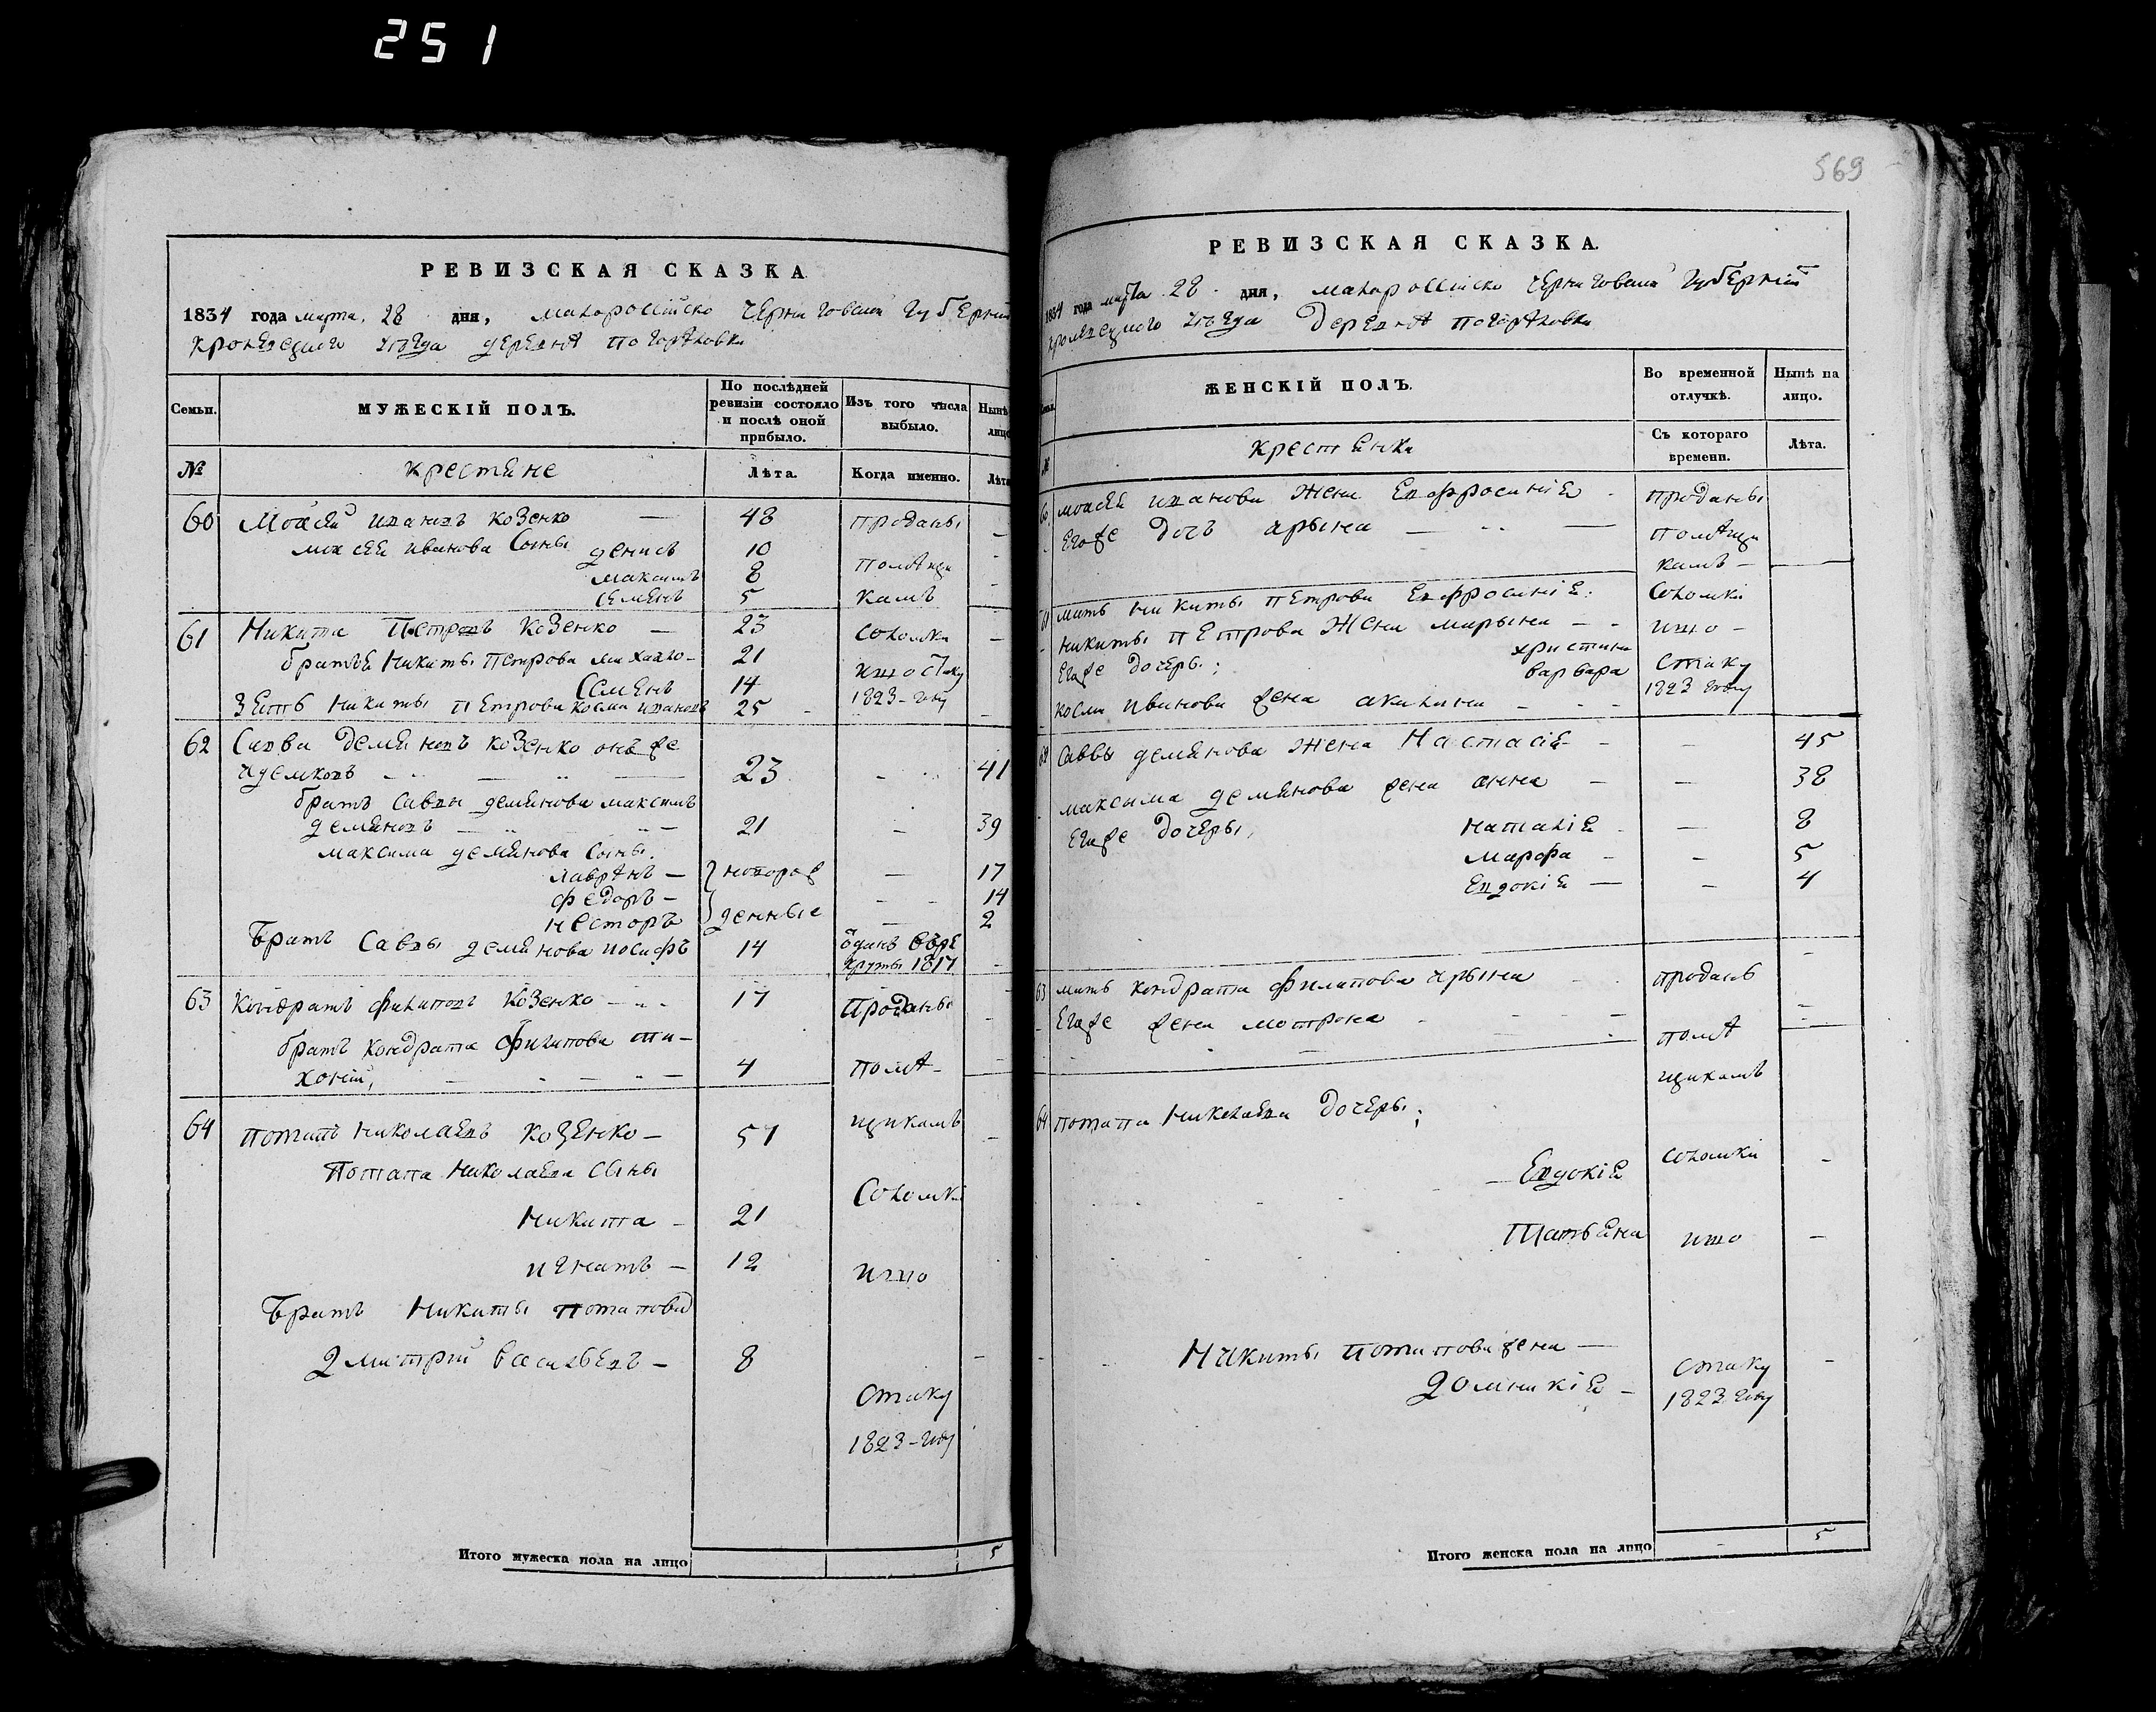 251
РЕВИЗСКАЯ СКАЗКА
1834 года марта 28 дня, малоросійско Черниговской Губерніи
Кролевецкого уезда деревня Погорѣловки
Семьи. МУЖЕСКІЙ ПОЛЪ. По послѣдней ревизіи состояло и послѣ оной прибыло. Изъ того числа выбыло. Нынѣ лицо
№ крестяне Лѣта. Когда именно. Лѣта
60 Моасей ивановъ козенко — 48 проданы
моасея иванова Сыны денисъ 10
помѣщи
максимъ 8
семенъ 5 камъ
61 Никита Петровъ козенко — 23 Соломки
братья Никиты Петрова михайло 21
Семенъ 14
зять Никиты Петрова косма ивановъ 25 1823 году
62 Савва Демяновъ козенко онъже
идемковъ 23 41
братъ Саввы демянова максимъ
демяновъ 21 — 39
максима демянова Сыны
лаврѣнъ — новорож — 17
федоръ — 14
несторъ денные 2
братъ Саввы демянова иосифъ 14 1817
63 Кондратъ филиповъ козенко 17 проданы
братъ кондрата филипова ти-
хоній, 4 помѣ-
64 потапъ николаевъ козенко — 51 щикамъ
Потапа Николаева сыны
Соломкі
Никита — 21
игнатъ — 12
братъ Никиты потапова
Дмитрій васильевъ — 8
Стаку
1823 году
Итого мужеска пола на лицо 5
569
РЕВИЗСКАЯ СКАЗКА.
1834 года марта 28 дня, малоросійско Черниговской Губерніи
кролевецкого уезда Деревня погорѣловки
ЖЕНСКІЙ ПОЛЪ. Во временной отлучкѣ. Нынѣ на лицо.
крестянки Съ котораго времени. Лѣта.
60 моасея иванова жена Евфросинія проданы
Егоже дочь арына помѣщи
камъ
61 мать Никиты петрова Евфросинія Соломкі
никиты петрова жена марына
Егоже дочеры: христина
варвара Стаку
косми иванова жена акилина 1823 году
62 Саввы демянова жена Настасія — 45
максима демянова жена анна — 38
Егоже дочеры, наталія — 8
марфа — 5
Евдокія — 4
63 мать кондрата филипова ирына проданы
Егоже жена мотрона
помѣ
щикамъ
64 потапа николаева дочеры:
Евдокія Соломкі
Татьяна
Никиты потапова жена —
Домникія Стаку
1823 году
Итого женска пола на лицо 5